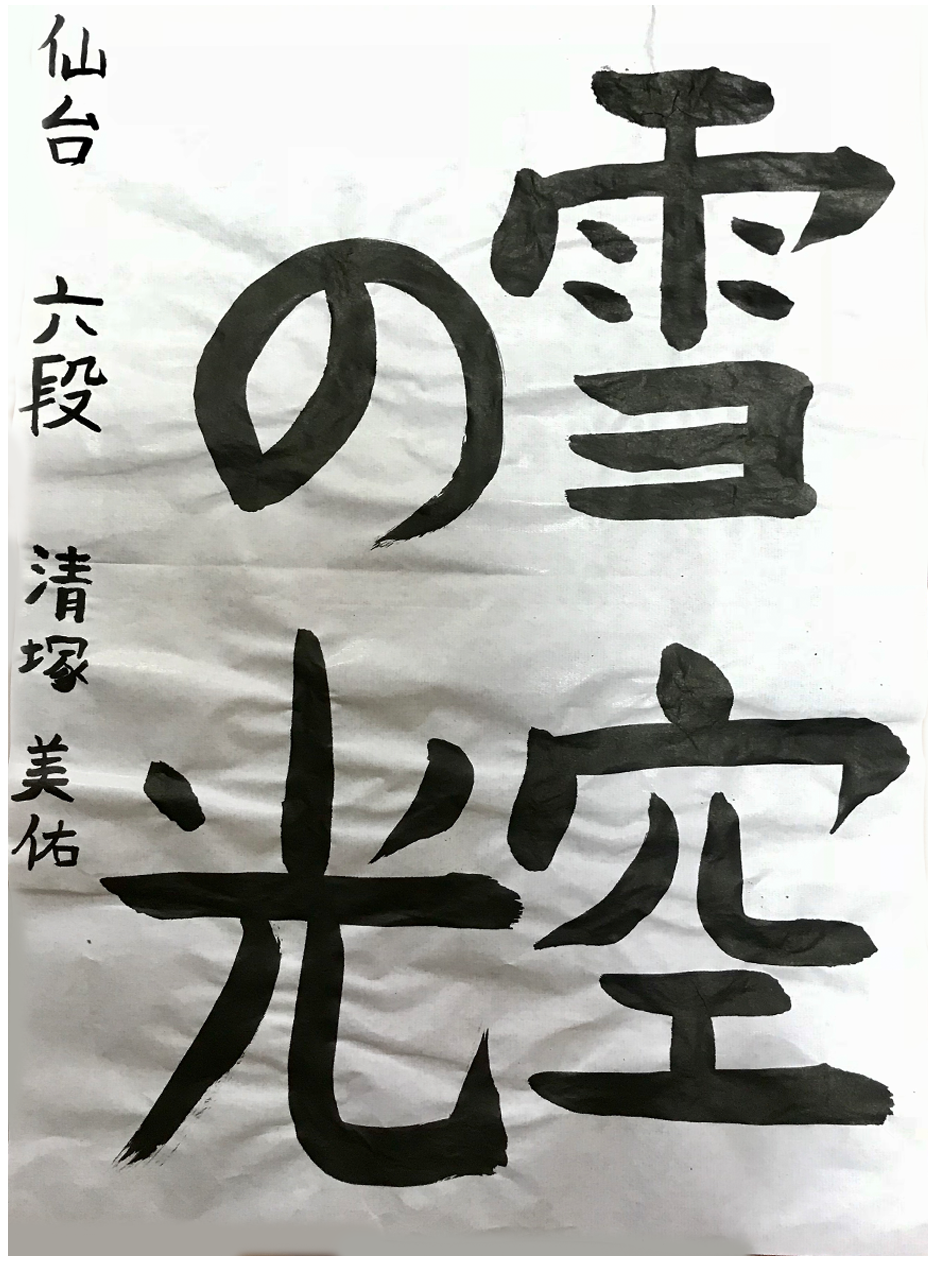 雪空
の光
仙台 六段 清塚 美佑